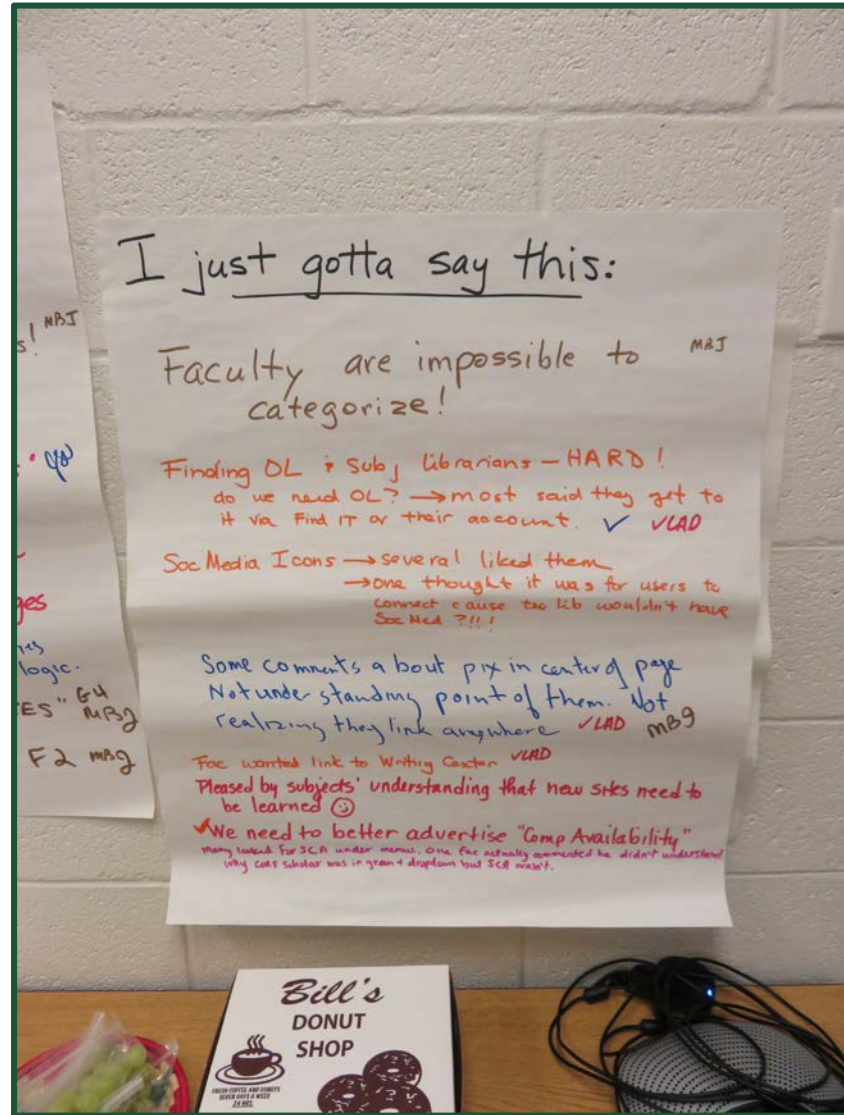 I just gotta say this:
Faculty are impossible to MBJ
categorize!
Finding OL & Subj Librarians – HARD!
do we need OL? → most said they get to
it via Find IT or their account. ✓ ✓LAD
Soc Media Icons → several liked them
→ one thought it was for users to
connect cause the lib wouldn't have
Soc Med ?!!!
Some comments about pix in center of page
Not understanding point of them. Not
realizing they link anywhere ✓LAD mBg
Fac wanted link to Writing Center ✓LAD
Pleased by subjects' understanding that new sites need to
be learned ☺
✓We need to better advertise "Comp Availability"
Many looked for SCA under menus. One fac actually commented he didn't understand
why core scholar was in green & dropdown but SCA wasn't.
s! MBJ
ges
logic.
ES" G4
MBg
F2 mBg
Bill's
DONUT
SHOP
FRESH COFFEE AND DONUTS
SEVEN DAYS A WEEK
24 HRS.